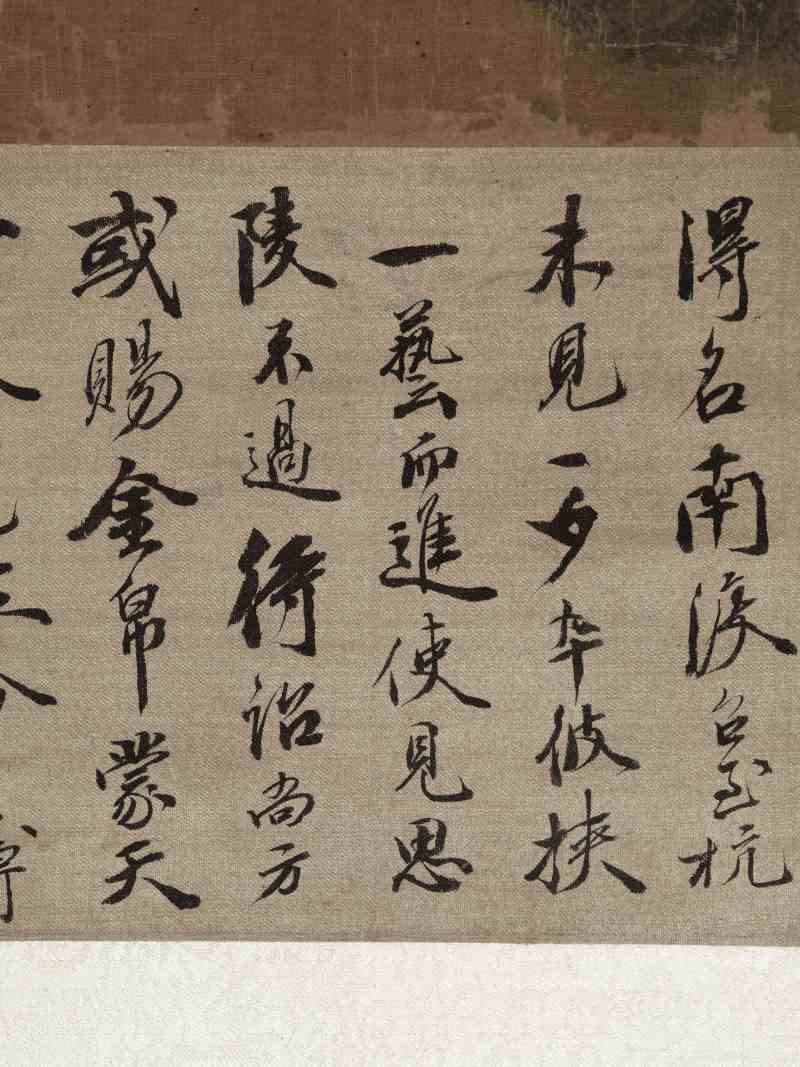 得名南渡召至杭
未見一夕卒彼挾
一藝而進使見思
陵不過待詔尚方
或賜金帛蒙天